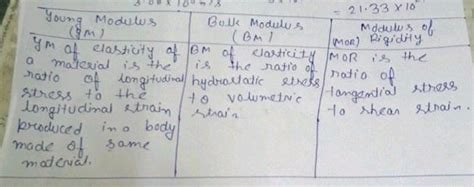 = 21.33 × 10
Young Modulus
(YM)
YM of elasticity of
a material is the
ratio of longitudinal
stress to the
longitudinal strain
produced in a body
made of same
material.
Bulk Modulus
(BM)
BM of elasticity
is the ratio of
hydrostatic stress
to volumetric
strain
Modulus of
(MOR) Rigidity
MOR is the
ratio of
tangential stress
to shear strain.